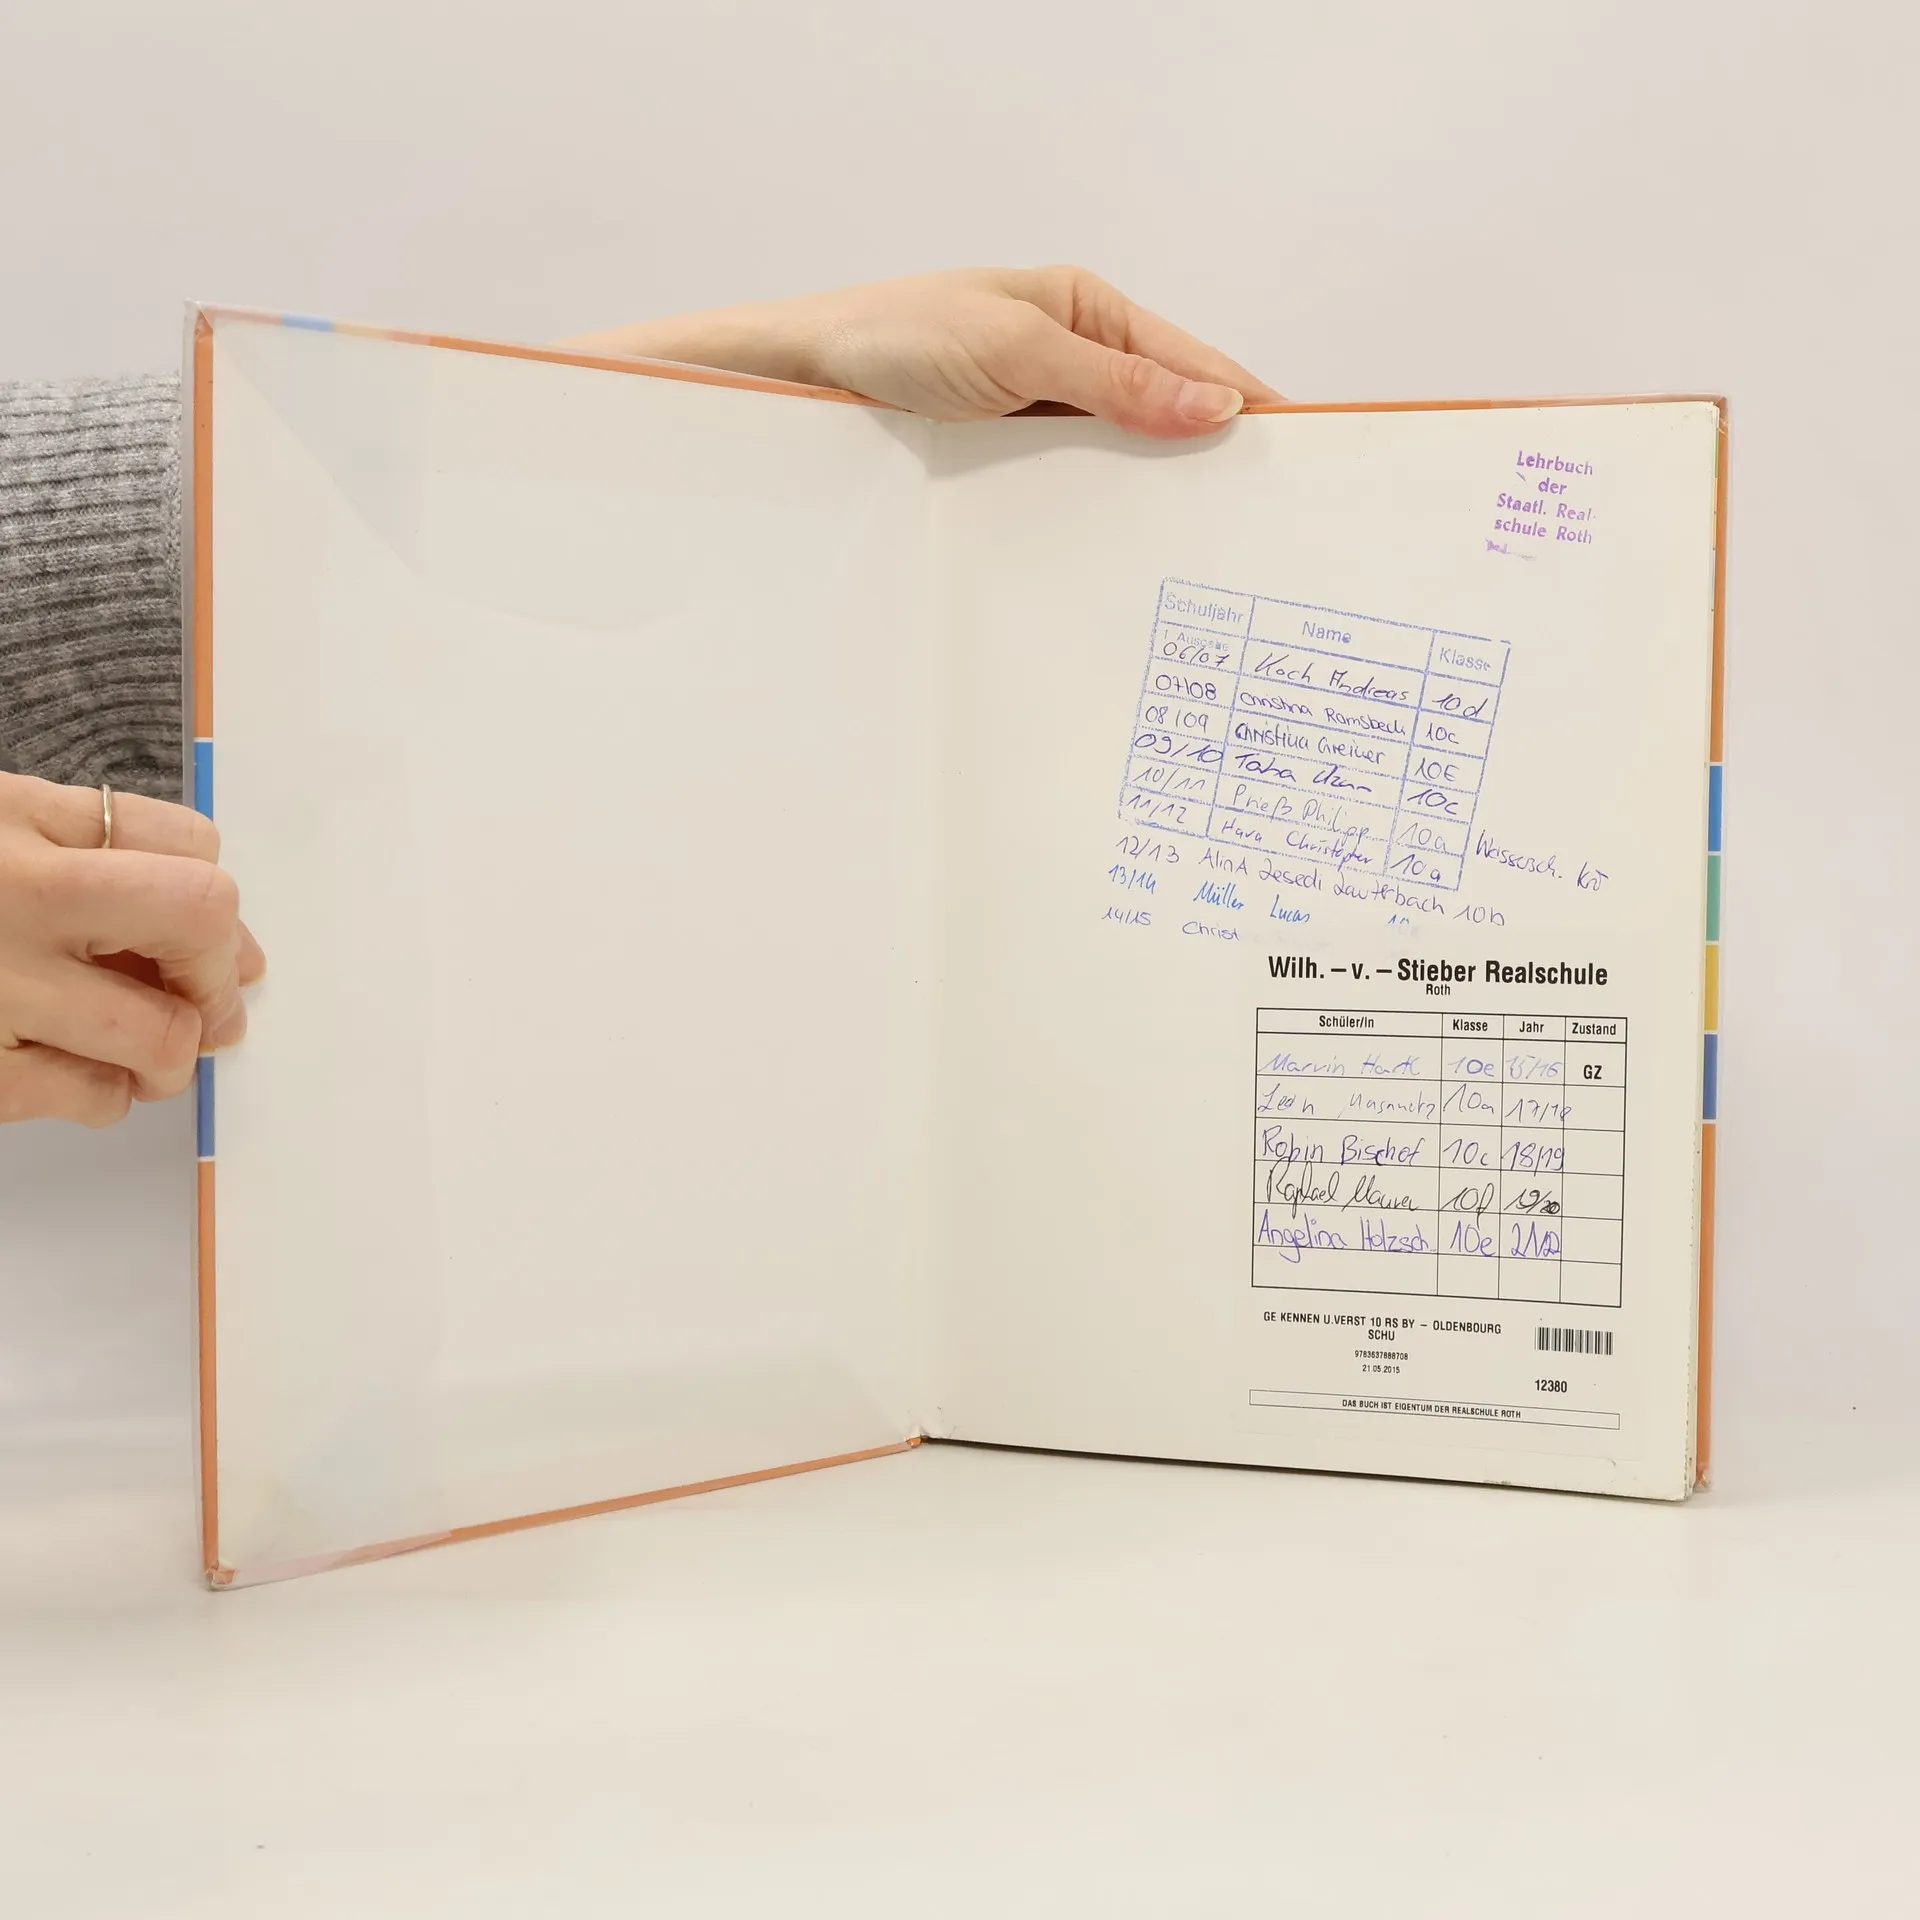 Lehrbuch
der
Staatl. Real-
schule Roth
Schuljahr Name Klasse
1. Ausgabe
06/07 Koch Andreas 10d
07/08 Christina Ramsbeck 10c
08/09 Christina Greiner 10E
09/10 Taha 10c
10/11 Prieß Philipp 10a
11/12 Christopher 10a
12/13 AlinA Lesedi Lauterbach 10b
13/14 Müller Lucas
14/15 Christ
Wilh. – v. – Stieber Realschule
Roth
Schüler/in Klasse Jahr Zustand
Marvin Hartl 10e 15/16 GZ
Leon 10a 17/18
Robin Bischof 10c 18/19
Raphael Maurer 10f 19/20
Angelina Holzsch. 10e 21/22
GE KENNEN U.VERST 10 RS BY – OLDENBOURG
SCHU
9783637888708
21.05.2015
12380
DAS BUCH IST EIGENTUM DER REALSCHULE ROTH